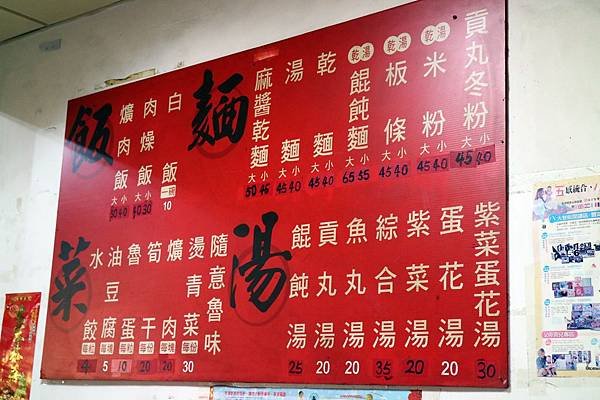 飯
爌肉飯 大小 50 40
肉燥飯 大小 40 30
白飯 一碗 10
麵
麻醬乾麵 大小 50 45
湯麵 大小 45 40
乾麵 大小 45 40
乾湯 餛飩麵 大小 65 55
乾湯 板條 大小 45 40
乾湯 米粉 大小 45 40
貢丸冬粉 大小 45 40
菜
水餃 每粒
油豆腐 每塊 5
魯蛋 每粒 10
筍干 每份 20
爌肉 每塊 20
燙青菜 每份 30
隨意魯味
湯
餛飩湯 25
貢丸湯 20
魚丸湯 20
綜合湯 35
紫菜湯 20
蛋花湯 20
紫菜蛋花湯 30